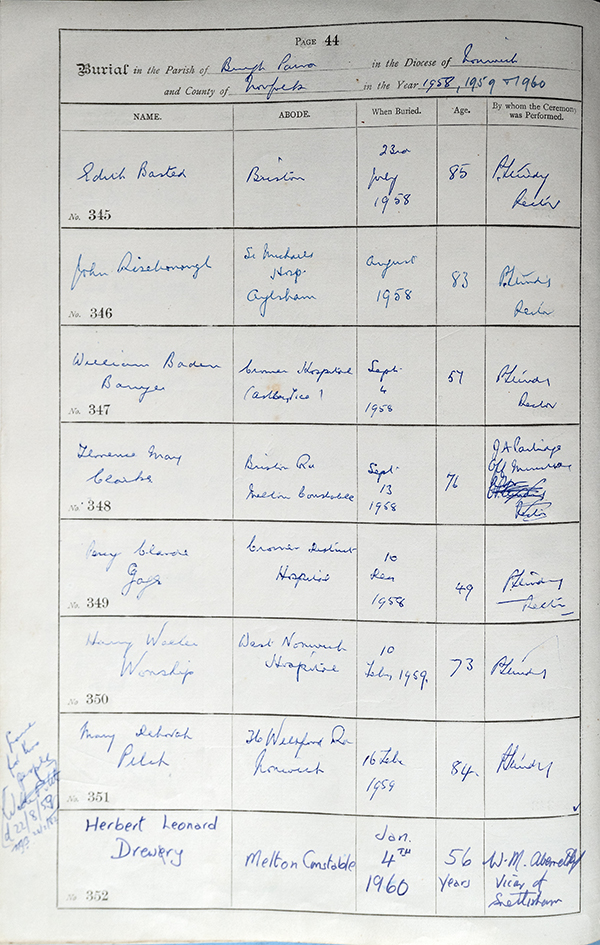 PAGE 44
Burial in the Parish of Burgh Parva in the Diocese of Norwich
and County of Norfolk in the Year 1958, 1959 & 1960
NAME. ABODE. When Buried. Age. By whom the Ceremony was Performed.
Edith Basted
No. 345
Briston
23rd
July
1958
85
Rector
John Riseborough
No. 346
St Michaels
Hosp.
Aylsham
August
1958
83
Rector
William Baden
No. 347
Cromer Hospital
Sept
4
1958
57
Rector
Florence May
Clarke
No. 348
Briston Rd
Melton Constable
Sept
13
1958
76
J A Partridge
Off
Percy Claude
No. 349
Cromer District
Hospital
10
Dec
1958
49
Rector
Harry
Worship
No. 350
West Norwich
Hospital
10
Feb, 1959.
73
Mary Deborah
Pelch
No. 351
Rd
Norwich
16 Feb
1959
84
Herbert Leonard
Drewery
No. 352
Melton Constable
Jan.
4TH
1960
56
years
W. M.
Vicar of
Snettisham
22/8/59